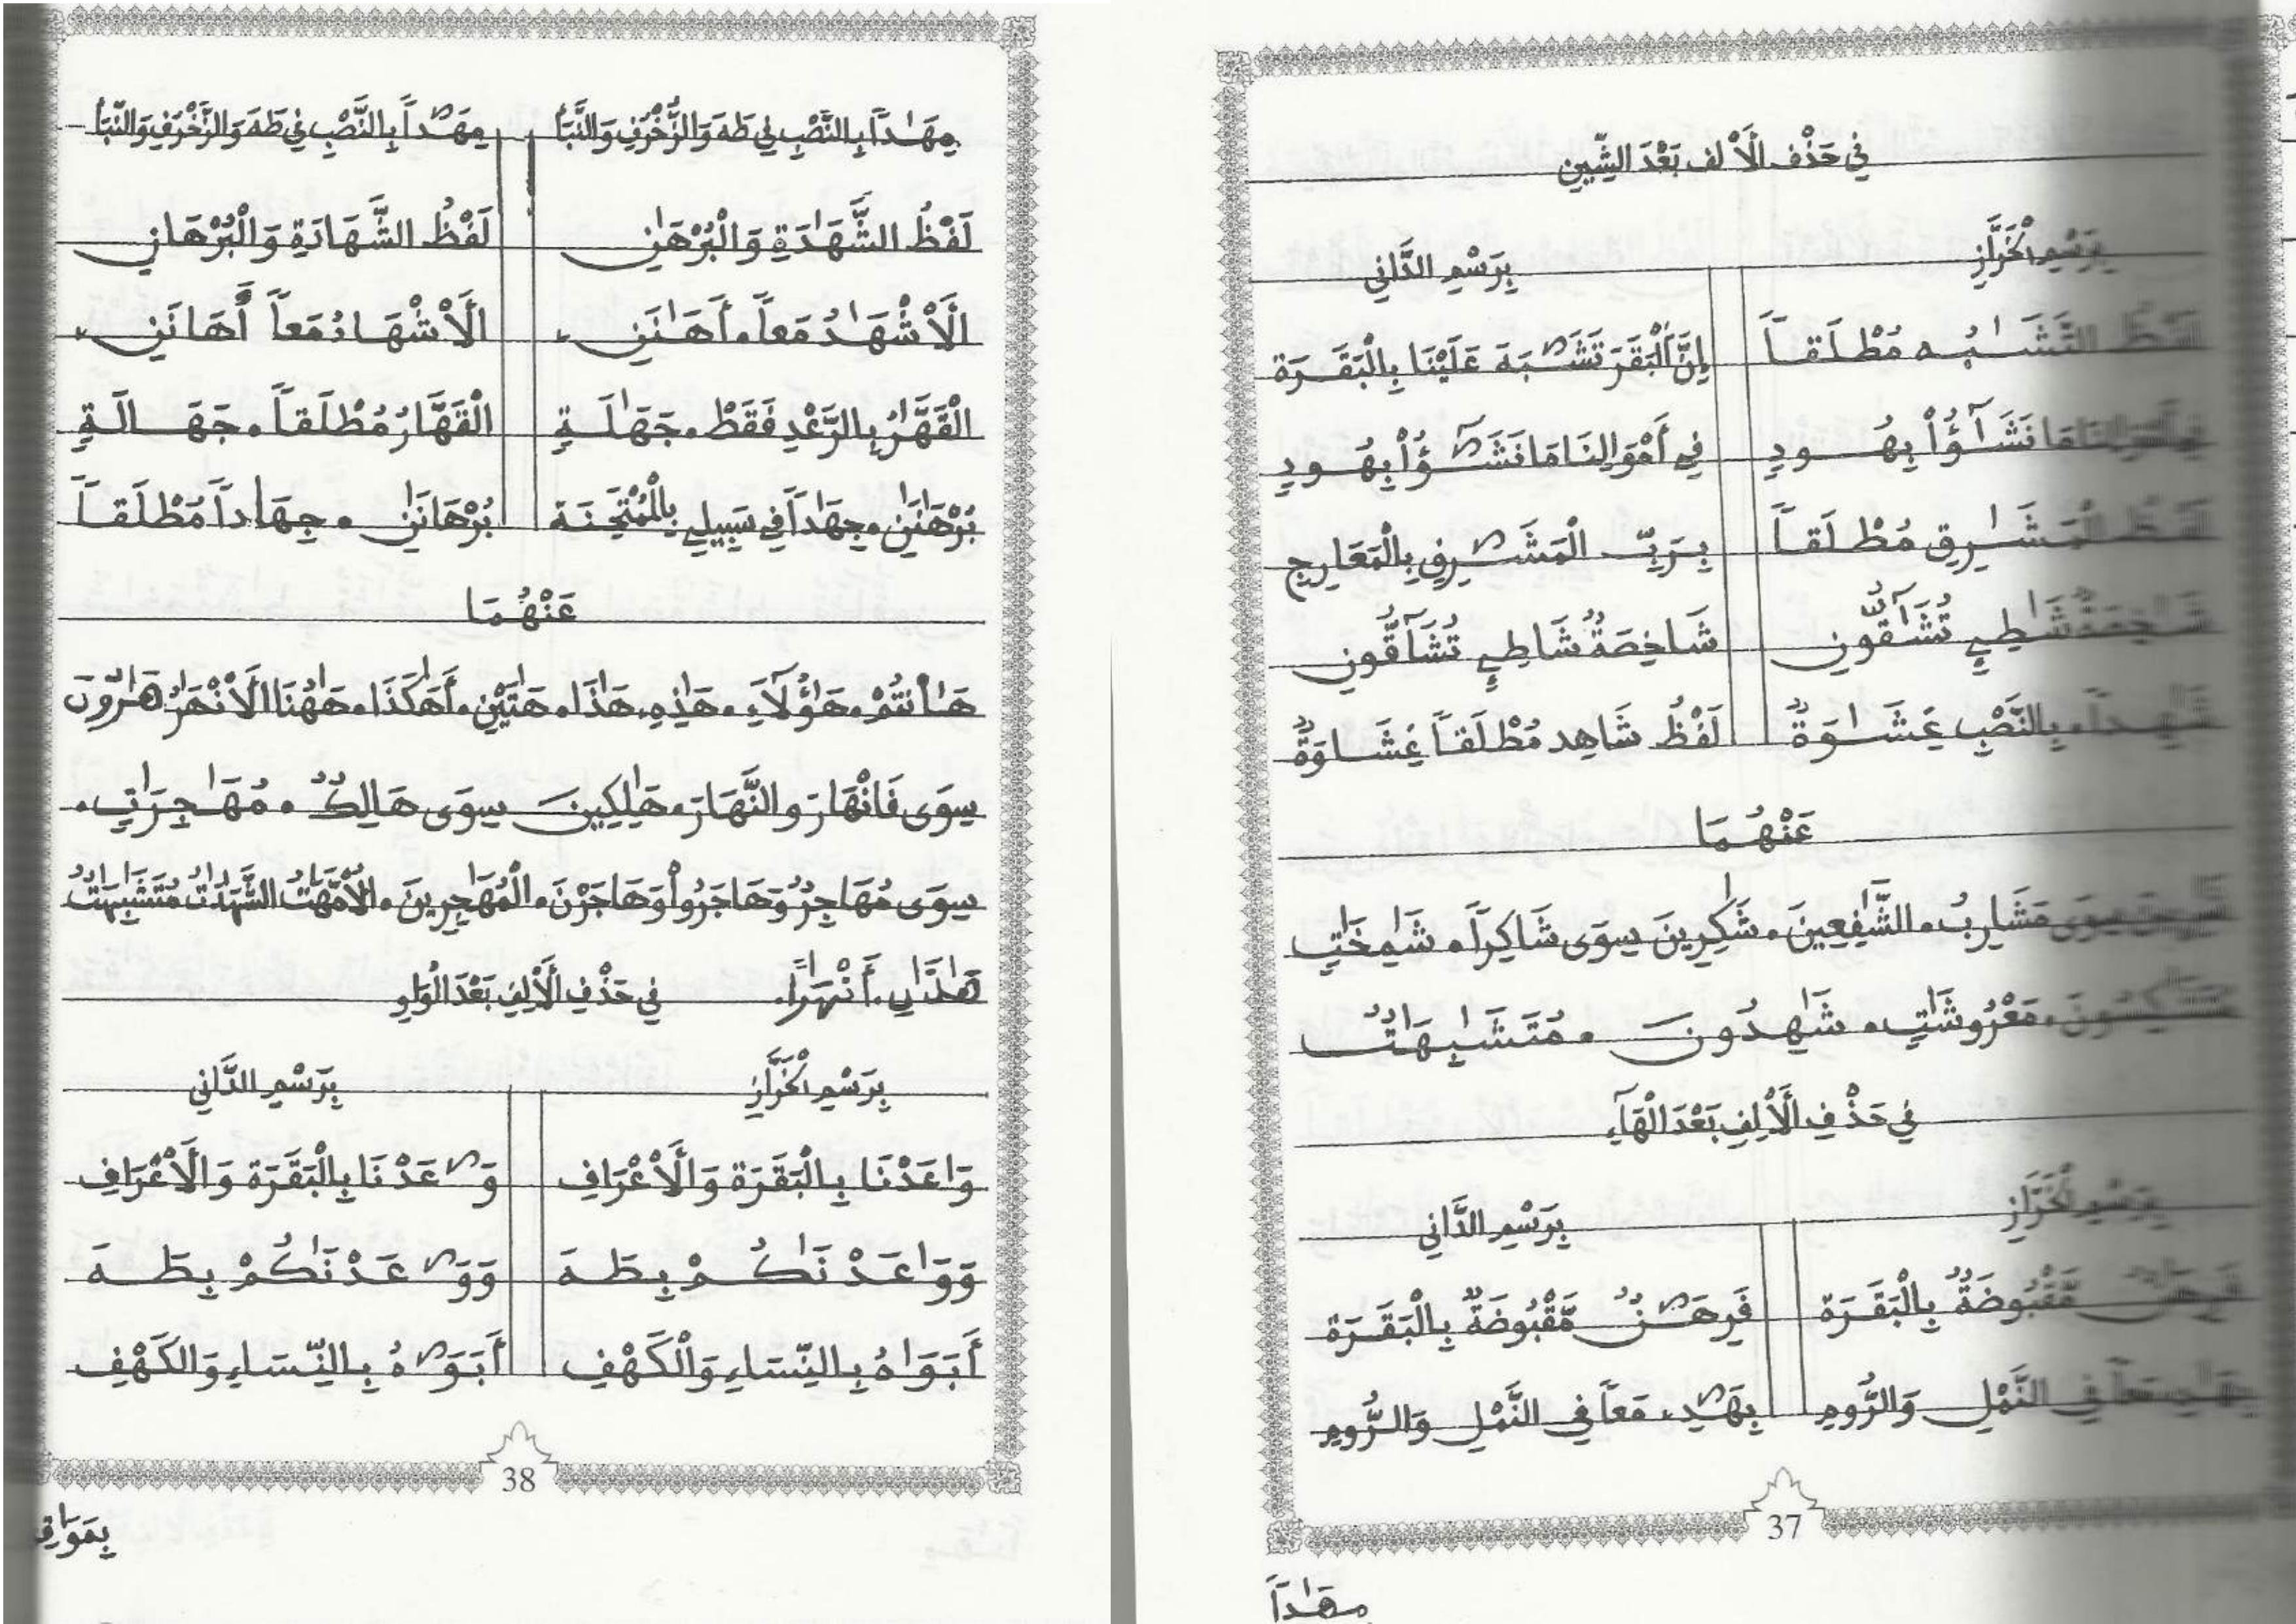 في حَذْفِ الْأَلِفِ بَعْدَ الشِّينِ
بِرَسْمِ الْخَرَّازِ بِرَسْمِ الدَّانِي
لَفْظُ التَّشَٰبُه مُطْلَقاً إِنَّ الْبَقَرَ تَشَٰبَهَ عَلَيْنَا بِالْبَقَرَة
فِي أَمْوَالِنَا مَا نَشَٰٓؤُاْ بِهُودِ فِي أَمْوَالِنَا مَا نَشَٰٓؤُاْ بِهُودِ
لَفْظُ الْمَشَٰرِق مُطْلَقاً بِرَبِّ الْمَشَٰرِقِ بِالْمَعَارِجِ
شَٰخِصَةٌ شَٰطِىِٕ تُشَٰٓقُّونِ شَاخِصَةٌ شَاطِىِٕ تُشَآقُّونِ
شَٰهِداً بِالنَّصْبِ غِشَٰوَةٌ لَفْظُ شَاهِد مُطْلَقاً غِشَاوَةٌ
عَنْهُمَا
سِوَى مَشَارِبُ. الشَّٰفِعِينَ. شَٰكِرِينَ سِوَى شَاكِراً. شَٰمِخَٰتٍ
مُتَشَٰكِسُونَ. مَعْرُوشَٰتٍ. شَٰهِدُونَ. مُتَشَٰبِهَٰتٌ
في حَذْفِ الْأَلِفِ بَعْدَ الْهَآءِ
بِرَسْمِ الْخَرَّازِ بِرَسْمِ الدَّانِي
فَرِهَٰنٌ مَّقْبُوضَةٌ بِالْبَقَرَة فَرِهَٰنٌ مَّقْبُوضَةٌ بِالْبَقَرَة
بِهَٰدِ مَعاً في النَّمْلِ وَالرُّومِ بِهَٰدِ، مَعاً في النَّمْلِ وَالرُّومِ
37
مِهَٰداً
مِهَٰداً بِالنَّصْبِ فِي طَهَ وَالزُّخْرُفِ وَالنَّبَإِ مِهَٰداً بِالنَّصْبِ فِي طَهَ وَالزُّخْرُفِ وَالنَّبَإِ
لَفْظُ الشَّهَٰدَةِ وَالْبُرْهَٰنِ لَفْظُ الشَّهَادَةِ وَالْبُرْهَانِ
الْأَشْهَٰدُ مَعاً. أَهَٰنَنِ الْأَشْهَادُ مَعاً أَهَانَنِ
الْقَهَّٰرُ بِالرَّعْدِ فَقَطْ. جَهَٰلَةٍ الْقَهَّارُ مُطْلَقاً. جَهَالَةٍ
بُرْهَٰنَٰنِ. جِهَٰداً فِي سَبِيلِي بِالْمُمْتَحِنَة بُرْهَانَٰنِ. جِهَاداً مُطْلَقاً
عَنْهُمَا
هَٰأَنتُمْ. هَٰؤُلَآءِ. هَٰذِهِ. هَٰذَا. هَٰتَيْنِ. أَهَٰكَذَا. هَٰهُنَا الْأَنْهَٰرُ هَٰرُونَ
سِوَى فَانْهَارَ وَالنَّهَارَ. هَٰلِكِينَ سِوَى هَالِكٌ. مُهَٰجِرَٰتٍ.
سِوَى مُهَاجِرٌ وَهَاجَرُواْ وَهَاجَرْنَ. الْمُهَٰجِرِينَ. الْأُمَّهَٰتُ الشَّهَٰدَٰتُ مُتَشَٰبِهَٰتٌ
أَنْهَٰراً. في حَذْفِ الْأَلِفِ بَعْدَ الْوَاوِ
بِرَسْمِ الْخَرَّازِ بِرَسْمِ الدَّانِي
وَاعَدْنَا بِالْبَقَرَة وَالْأَعْرَافِ وَٰعَدْنَا بِالْبَقَرَة وَالْأَعْرَافِ
وَوَاعَدْنَٰكُمْ بِطَهَ وَوَٰعَدْنَٰكُمْ بِطَهَ
أَبَوَاهُ بِالنِّسَاءِ وَالْكَهْفِ أَبَوَٰهُ بِالنِّسَاءِ وَالْكَهْفِ
38